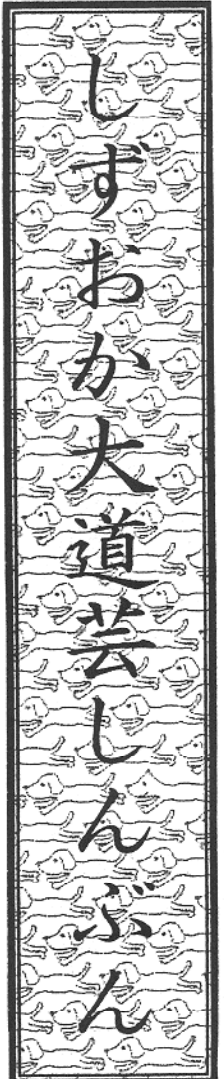 しずおか大道芸しんぶん